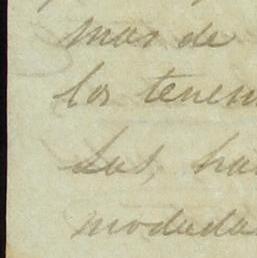 mas de
los tenem
Sus, ha
modada